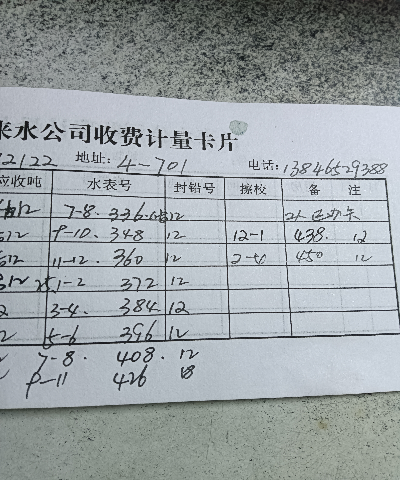 来水公司收费计量卡片
2122 地址: 4-701 电话: 13846529388
应收吨 水表号 封铅号 擦校 备 注
12 7-8. 336. 12
12 9-10. 348 12 12-1 438. 12
12 11-12. 360 12 2-5 450 12
12 25.1-2 372 12
2 3-4. 384 12
2 5-6 396 12
7-8. 408. 12
9-11 426 18